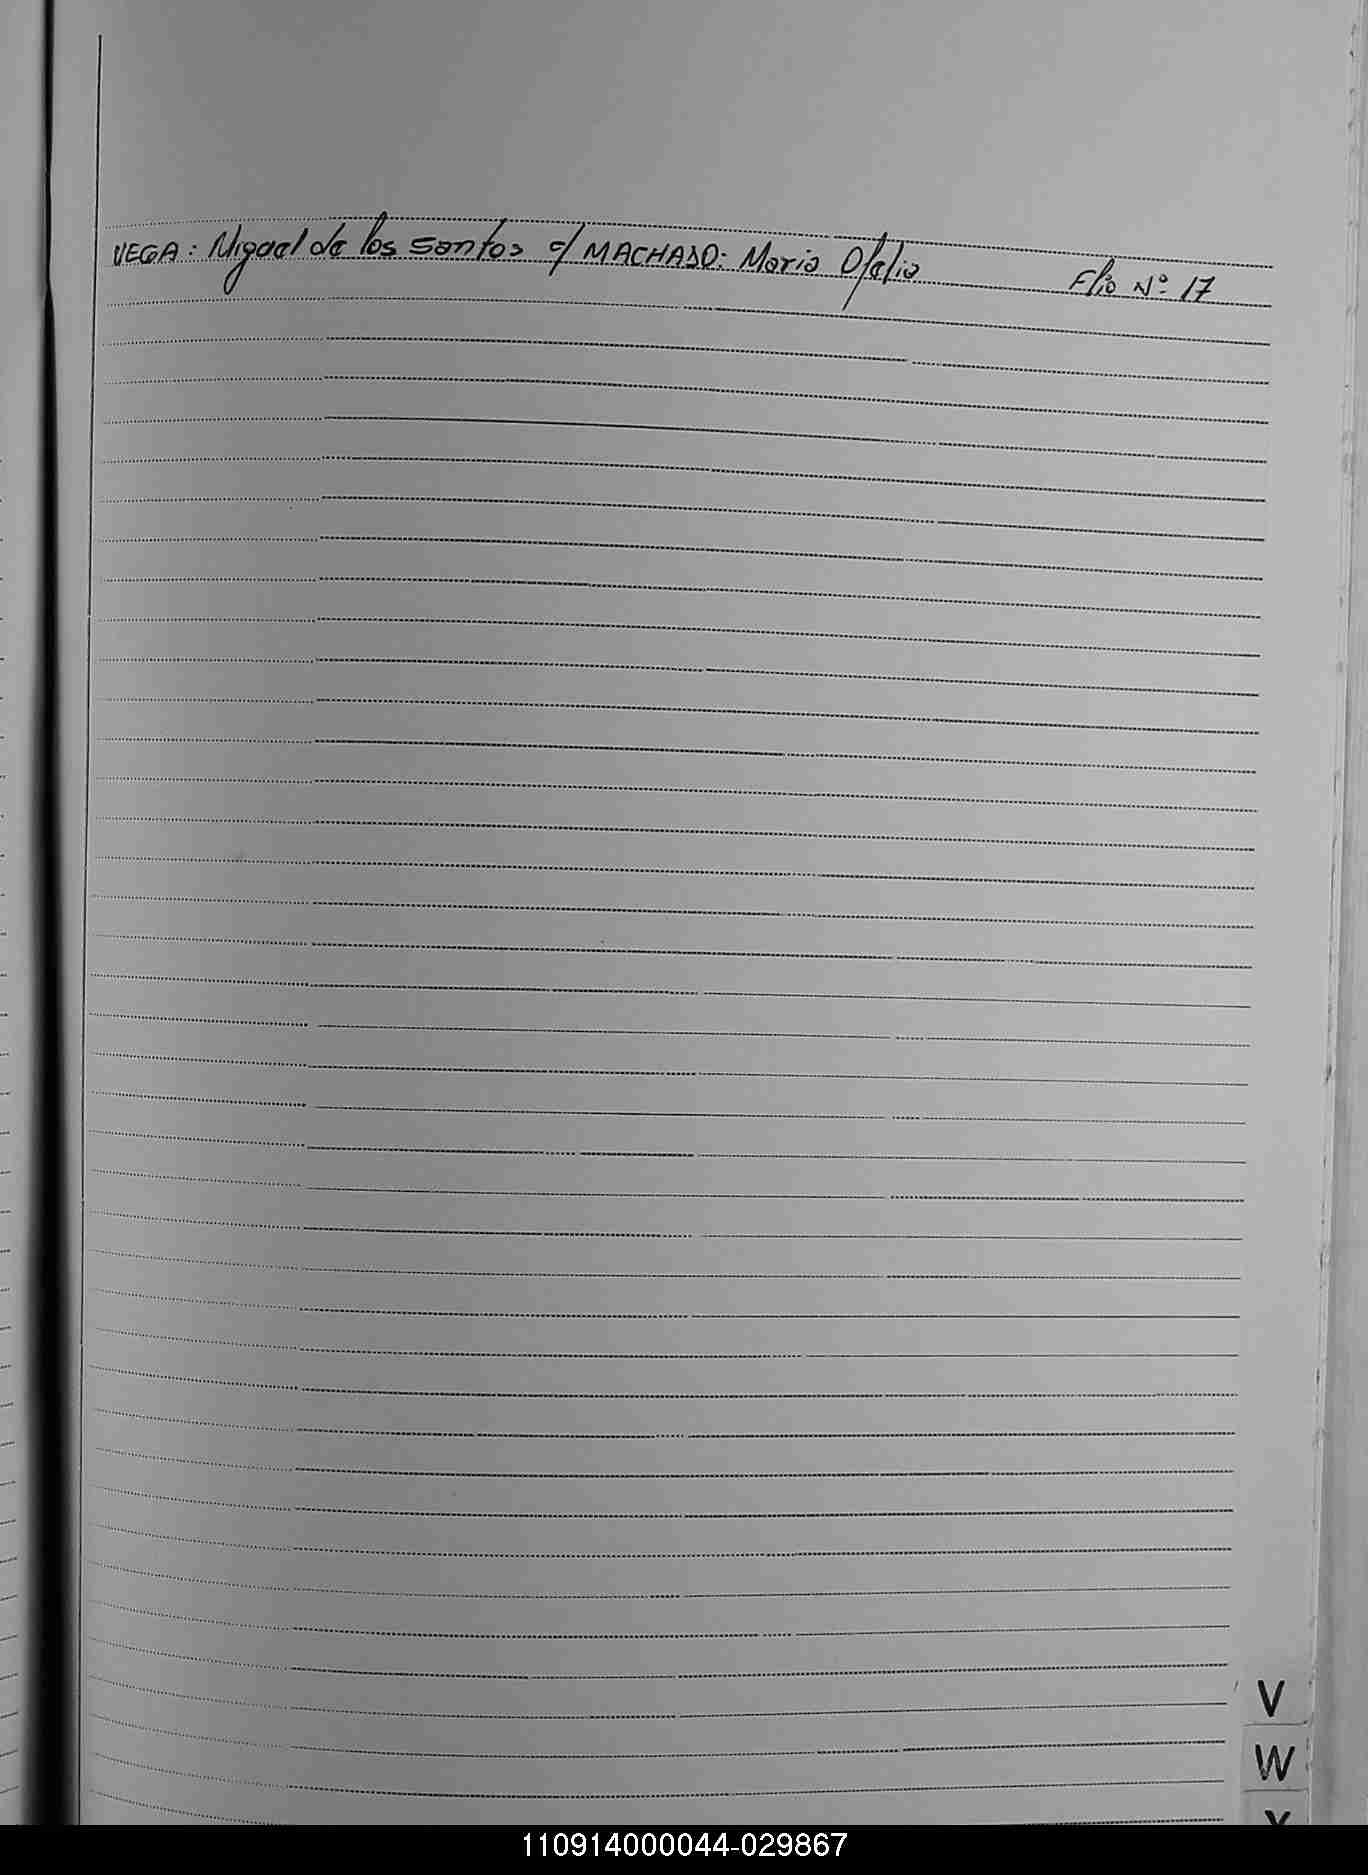 VEGA: Miguel de los Santos c/ MACHADO: Maria Ofelia Flio Nº 17
V
W
110914000044-029867